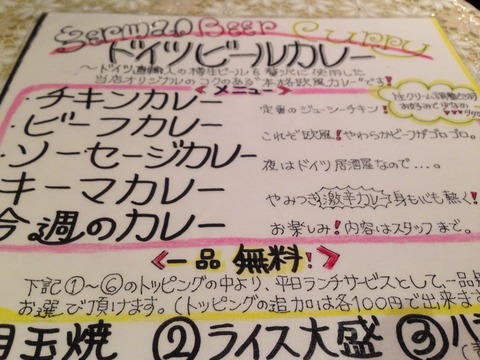 German Beer Curry
ドイツビールカレー
～ドイツ直輸入の樽生ビールを贅沢に使用した
当店オリジナルのコクのある"本格欧風カレー"です!
＜メニュー＞
・チキンカレー 定番のジューシーチキン!
・ビーフカレー これぞ欧風!やわらかビーフがゴロゴロ。
・ソーセージカレー 夜はドイツ居酒屋なので…。
キーマカレー やみつき激辛カレー!身も心も熱く!
今週のカレー お楽しみ!内容はスタッフまで。
＜一品無料!＞
下記①～⑥のトッピングの中より、平日ランチサービスとして、一品
お選び頂けます。(トッピングの追加は各100円で出来ます
目玉焼 ②ライス大盛 ③ハ